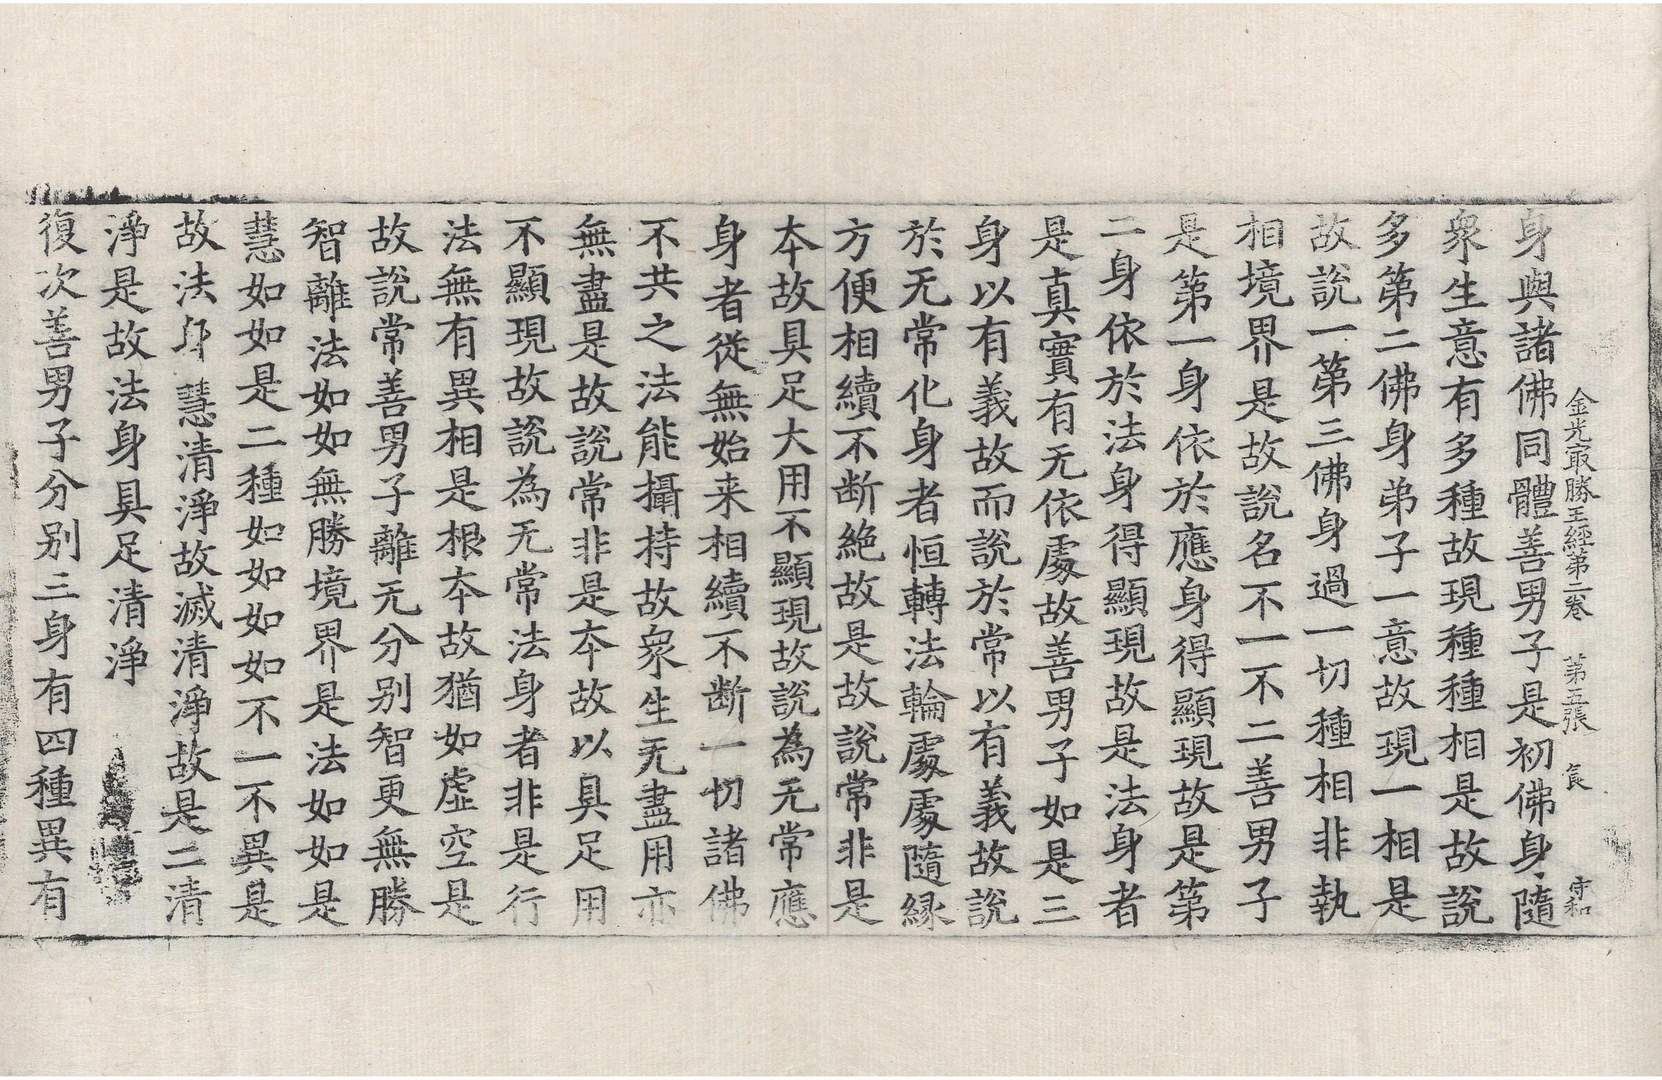 金光㝡勝王經第二卷 第五張 食 守和
身與諸佛同體善男子是初佛身隨
衆生意有多種故現種種相是故說
多第二佛身弟子一意故現一相是
故說一第三佛身過一切種相非執
相境界是故說名不一不二善男子
是第一身依於應身得顯現故是第
二身依於法身得顯現故是法身者
是真實有无依處故善男子如是三
身以有義故而說於常以有義故說
於无常化身者恒轉法輪處處隨緣
方便相續不断絶故是故說常非是
本故具足大用不顯現故說為无常應
身者從無始来相續不断一切諸佛
不共之法能攝持故衆生无盡用亦
無盡是故說常非是本故以具足用
不顯現故說為无常法身者非是行
法無有異相是根本故猶如虛空是
故說常善男子離无分別智更無勝
智離法如如無勝境界是法如如是
慧如如是二種如如如如不一不異是
故法身慧清淨故滅清淨故是二清
淨是故法身具足清淨
復次善男子分别三身有四種異有